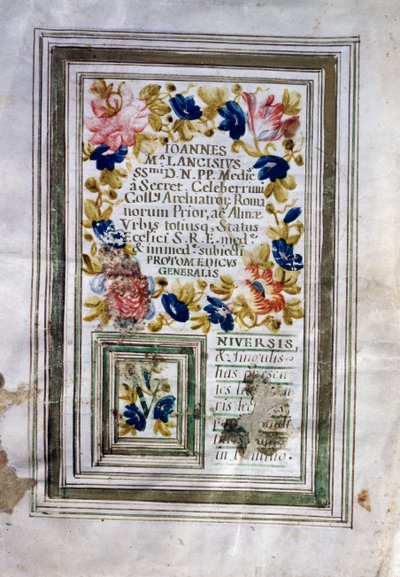 IOANNES
M.ª LANCISIVS
SSmi D. N. PP. Medic
à Secret. Celeberrimi
Collg Archiatror. Roma
norum Prior, ac Almæ
Vrbis totiusq. Status
Ecclici S. R. E. med.e
& immed.e subiecti
PROTOMEDICVS
GENERALIS
V
NIVERSIS,
& Singulis
has præsen
tes
ris
in